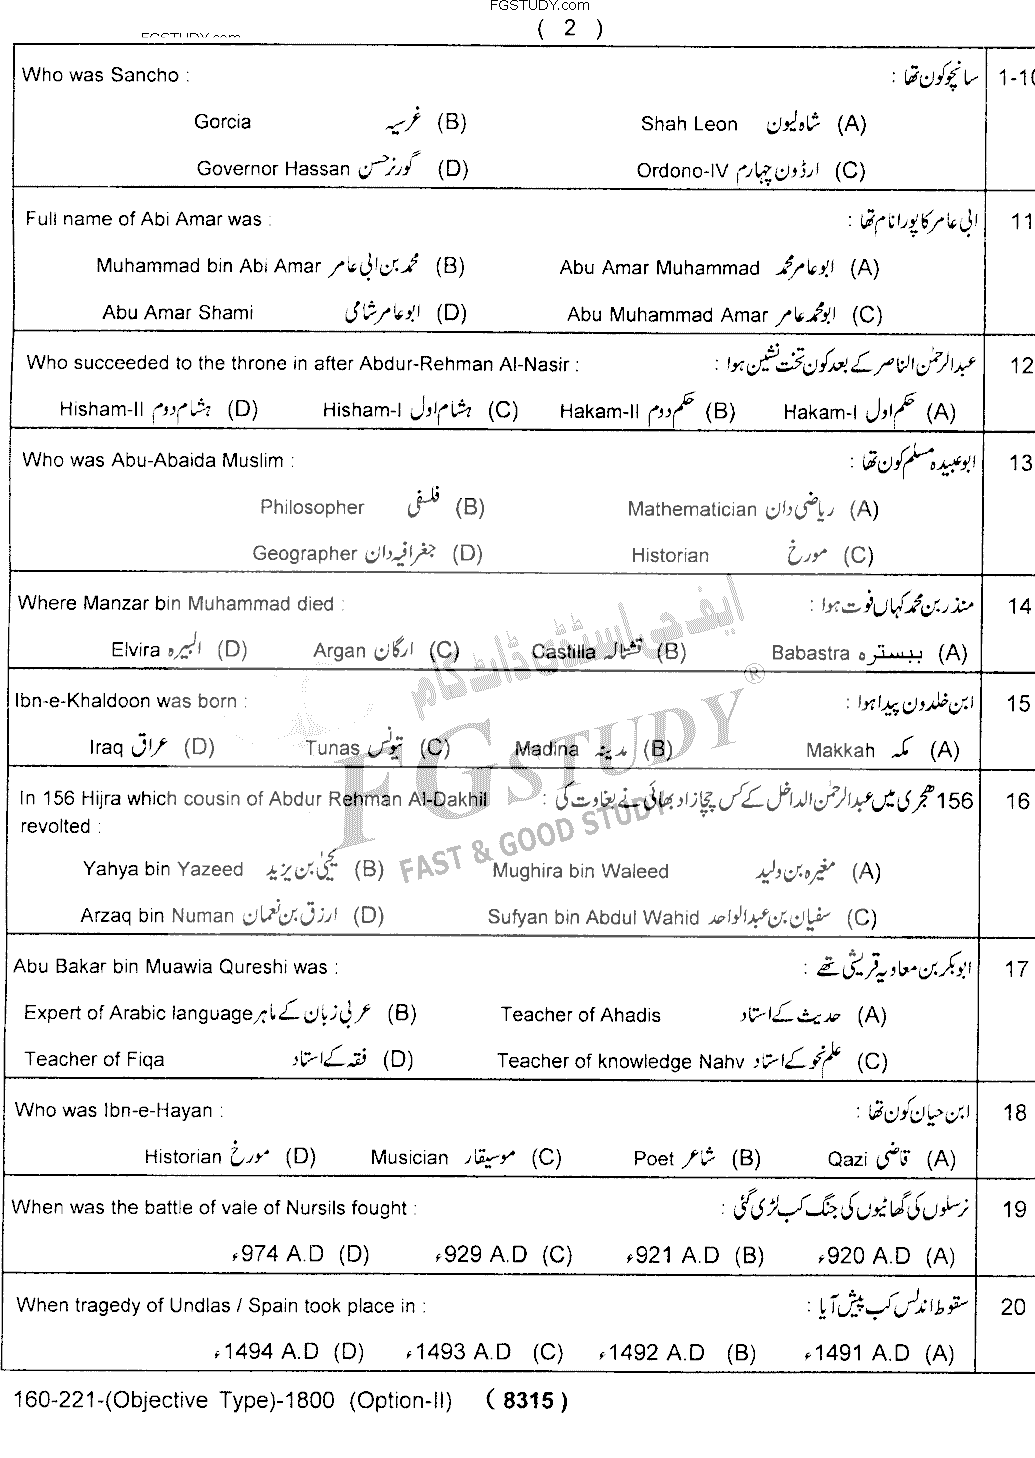 FGSTUDY.com
( 2 )
Who was Sancho : سانچو کون تھا : 1-10
Gorcia غرسیہ (B) Shah Leon شاہ لیون (A)
Governor Hassan گورنر حسن (D) Ordono-IV ارڈون چہارم (C)
Full name of Abi Amar was : ابی عامر کا پورا نام تھا : 11
Muhammad bin Abi Amar محمد بن ابی عامر (B) Abu Amar Muhammad ابو عامر محمد (A)
Abu Amar Shami ابو عامر شامی (D) Abu Muhammad Amar ابو محمد عامر (C)
Who succeeded to the throne in after Abdur-Rehman Al-Nasir : عبدالرحمٰن الناصر کے بعد کون تخت نشین ہوا : 12
Hisham-II ہشام دوم (D) Hisham-I ہشام اول (C) Hakam-II حکم دوم (B) Hakam-I حکم اول (A)
Who was Abu-Abaida Muslim : ابو عبیدہ مسلم کون تھا : 13
Philosopher فلسفی (B) Mathematician ریاضی دان (A)
Geographer جغرافیہ دان (D) Historian مورخ (C)
Where Manzar bin Muhammad died : منذر بن محمد کہاں فوت ہوا : 14
Elvira البیرہ (D) Argan ارگان (C) Castilla قشتالہ (B) Babastra ببسترہ (A)
Ibn-e-Khaldoon was born : ابن خلدون پیدا ہوا : 15
Iraq عراق (D) Tunas تیونس (C) Madina مدینہ (B) Makkah مکہ (A)
In 156 Hijra which cousin of Abdur Rehman Al-Dakhil 156 ہجری میں عبدالرحمٰن الداخل کے کس چچا زاد بھائی نے بغاوت کی : 16
revolted :
Yahya bin Yazeed یحیٰی بن یزید (B) Mughira bin Waleed مغیرہ بن ولید (A)
Arzaq bin Numan ارزق بن نعمان (D) Sufyan bin Abdul Wahid سفیان بن عبدالواحد (C)
Abu Bakar bin Muawia Qureshi was : ابوبکر بن معاویہ قریشی تھے : 17
Expert of Arabic language عربی زبان کے ماہر (B) Teacher of Ahadis حدیث کے استاد (A)
Teacher of Fiqa فقہ کے استاد (D) Teacher of knowledge Nahv علم نحو کے استاد (C)
Who was Ibn-e-Hayan : ابن حیان کون تھا : 18
Historian مورخ (D) Musician موسیقار (C) Poet شاعر (B) Qazi قاضی (A)
When was the battle of vale of Nursils fought : نرسلوں کی گھاٹیوں کی جنگ کب لڑی گئی : 19
974 A.D ء (D) 929 A.D ء (C) 921 A.D ء (B) 920 A.D ء (A)
When tragedy of Undlas / Spain took place in : سقوط اندلس کب پیش آیا : 20
1494 A.D ء (D) 1493 A.D ء (C) 1492 A.D ء (B) 1491 A.D ء (A)
160-221-(Objective Type)-1800 (Option-II) ( 8315 )
ایف جی اسٹڈی ڈاٹ کام
FGSTUDY ®
FAST & GOOD STUDY